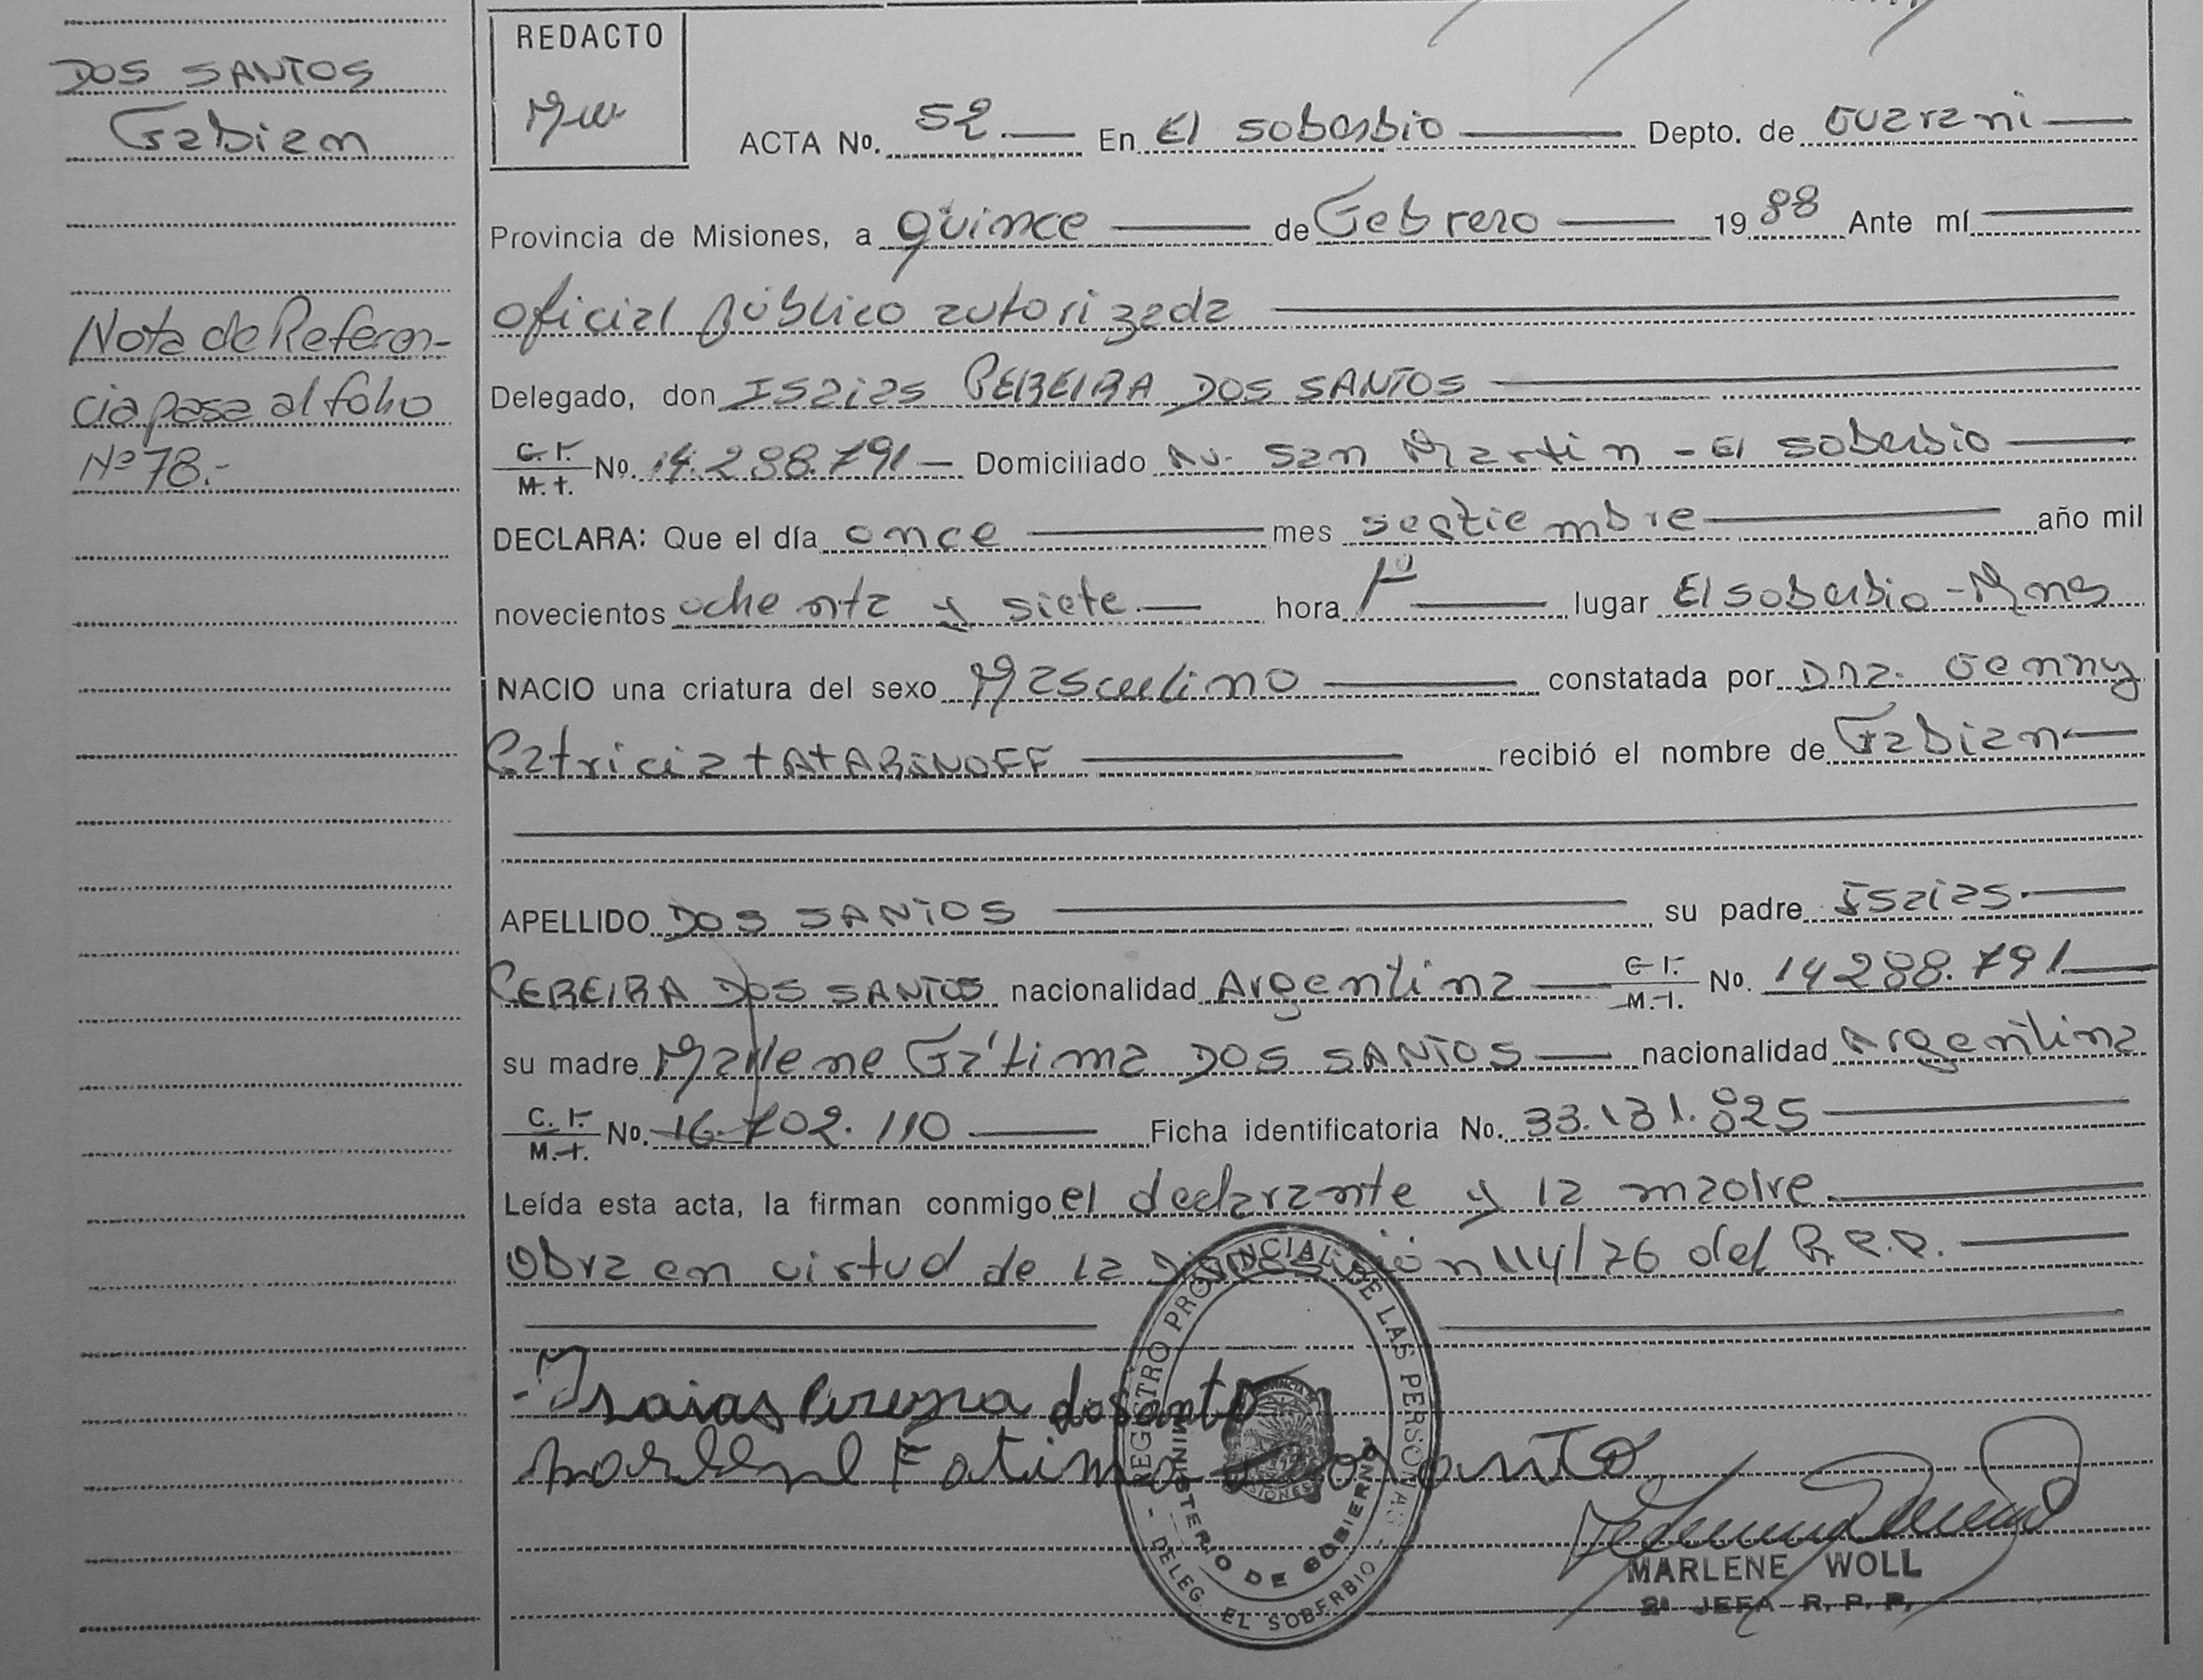 DOS SANTOS
Fabian
Nota de Referen-
cia pasa al folio
Nº 78.-
REDACTO
ACTA No. 52.— En El Soberbio — Depto. de Guarani —
Provincia de Misiones, a quince — de Febrero — 19 88 Ante mí —
oficial público autorizada —
Delegado, don Isaias PEREIRA DOS SANTOS —
C. I. / M. I. No. 14.288.791 — Domiciliado Av. San Martin - El Soberbio —
DECLARA: Que el día once — mes septiembre — año mil
novecientos ochenta y siete.— hora 1º — lugar El Soberbio - Mnes
NACIO una criatura del sexo Masculino — constatada por Dra. Genny
Patricia TATARINOFF — recibió el nombre de Fabian —
APELLIDO DOS SANTOS — su padre Isaias —
PEREIRA DOS SANTOS nacionalidad Argentina — C. I. / M. I. No. 14288.791 —
su madre Marlene Fátima DOS SANTOS — nacionalidad Argentina
C. I. / M. I. No. 16.702.110 — Ficha identificatoria No. 33.131.825 —
Leída esta acta, la firman conmigo el declarante y la madre. —
Obra en virtud de la Disposición 114/76 del R.P.P. —
- Isaias Pereyra dosanto
Marlene Fatima Dosanto
REGISTRO PROVINCIAL DE LAS PERSONAS - DELEG. EL SOBERBIO -
MINISTERIO DE GOBIERNO
MARLENE WOLL
2ª JEFA R. P. P.